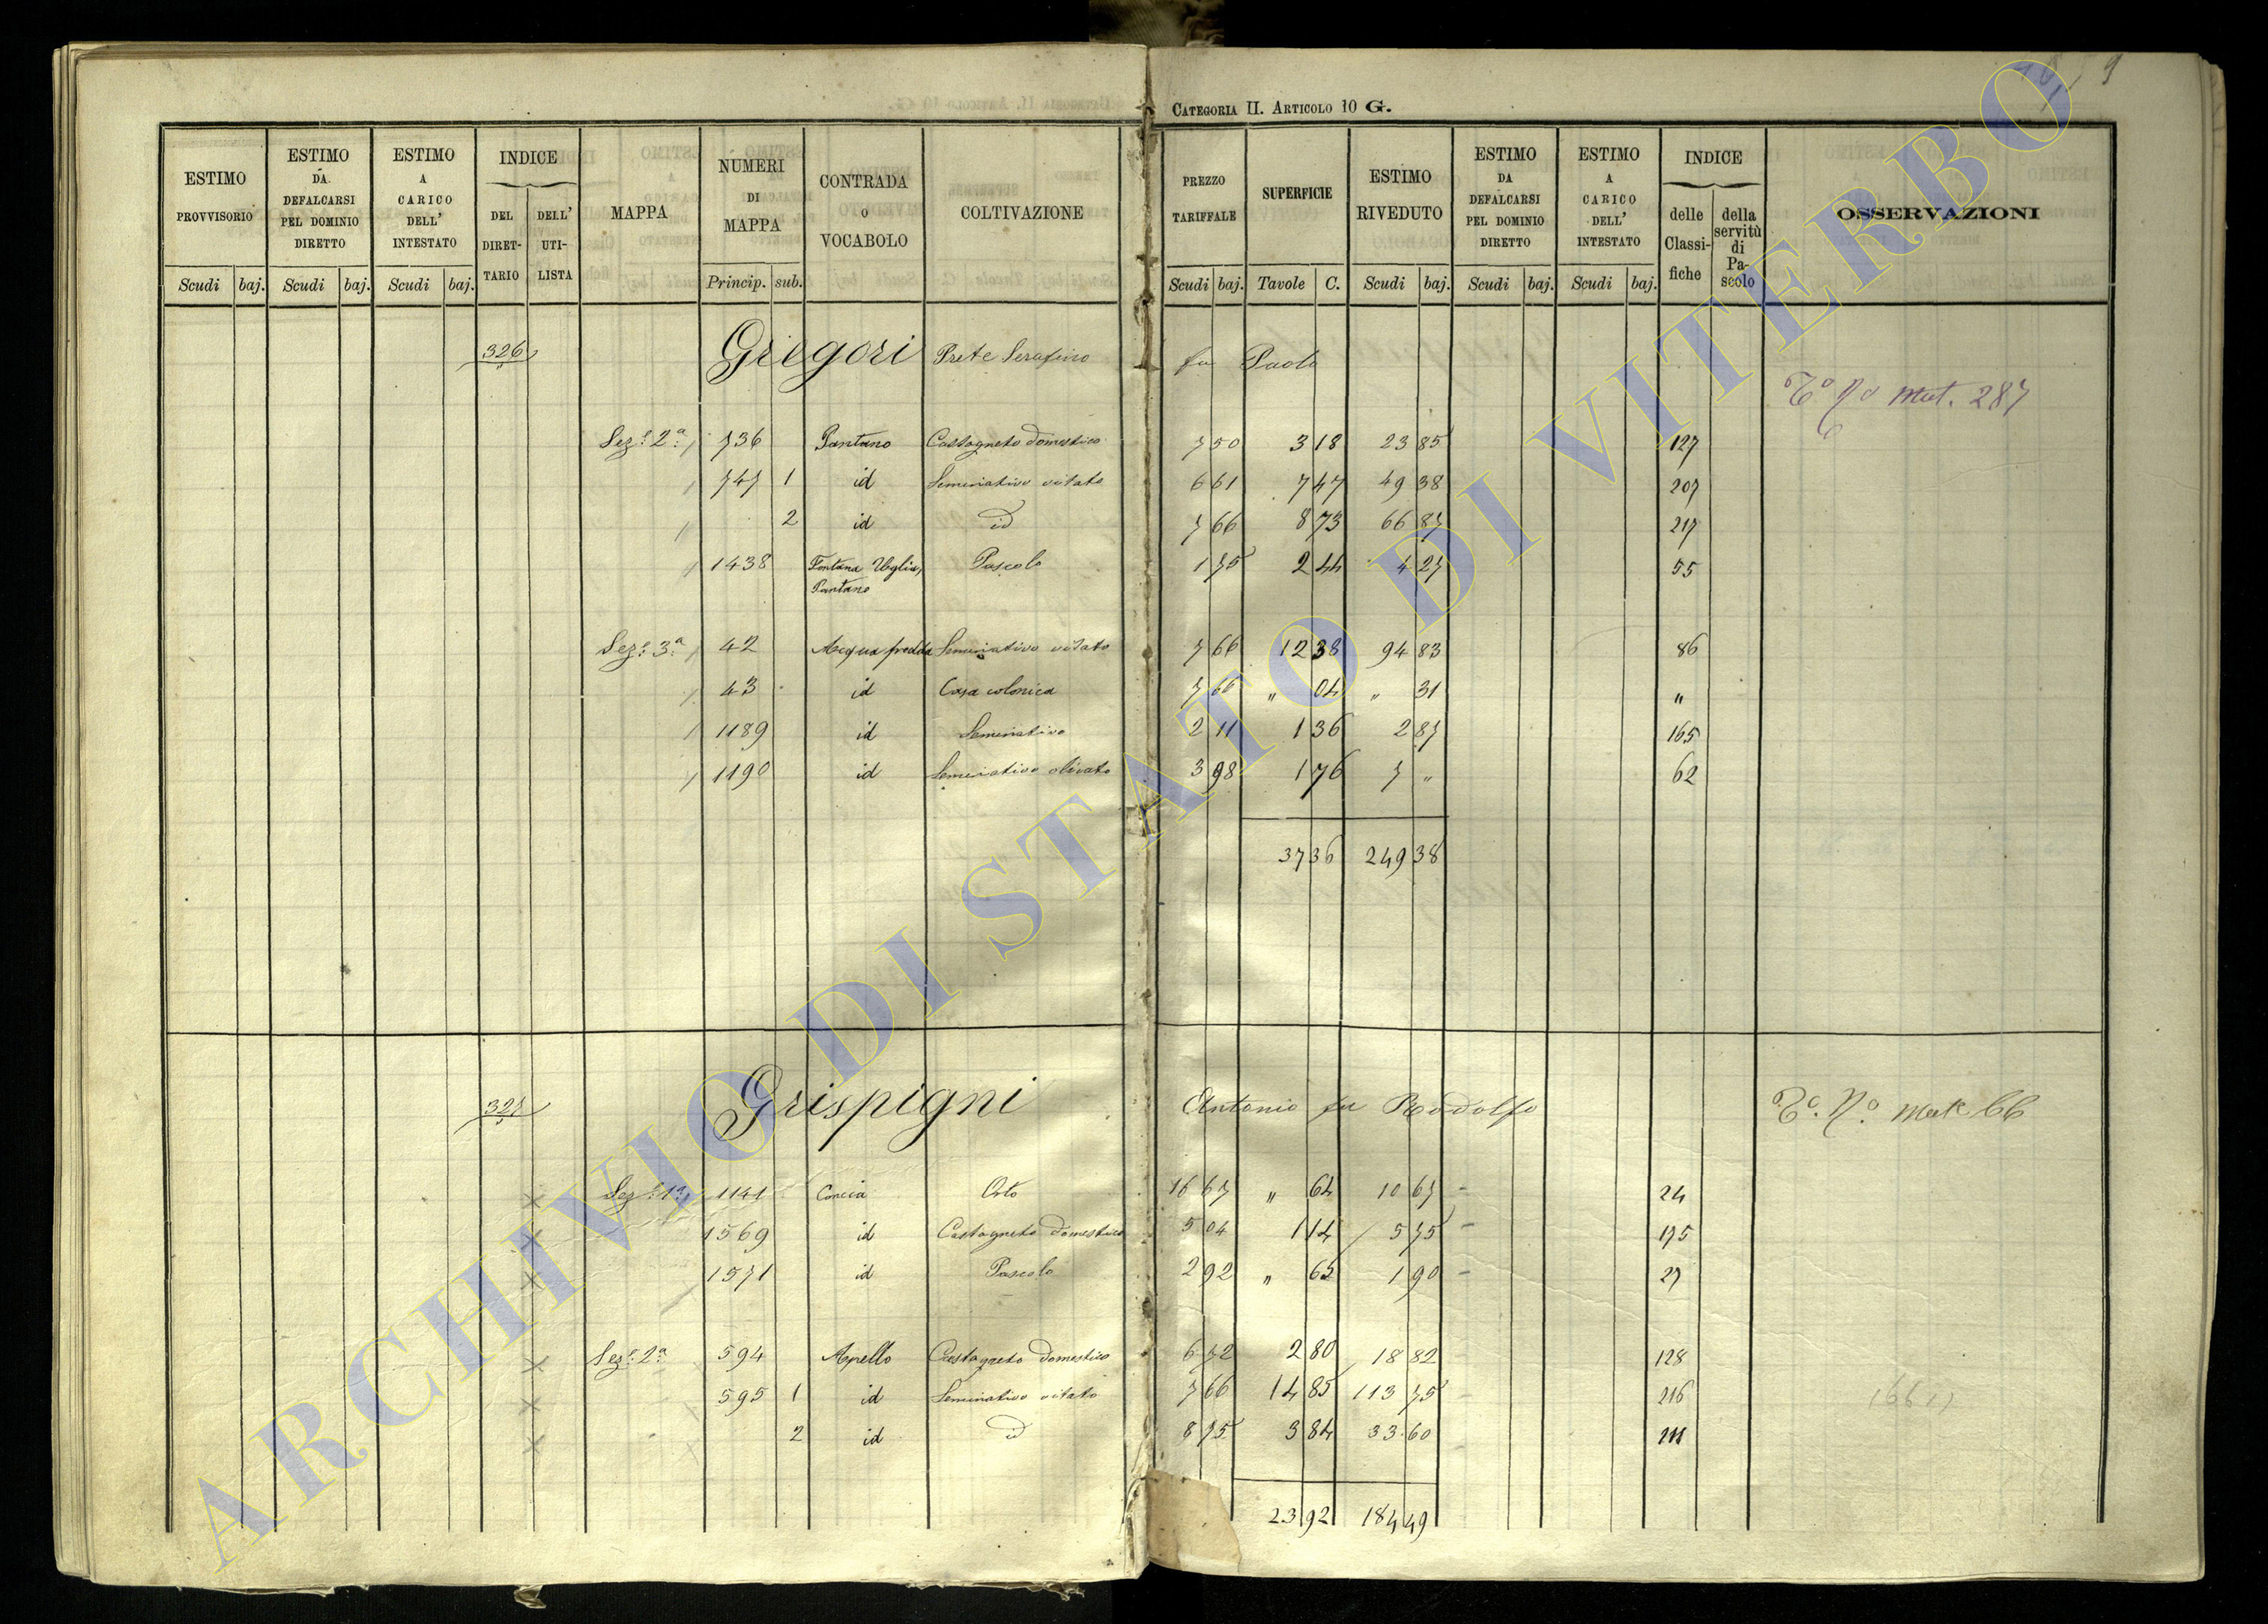 CATEGORIA II. ARTICOLO 10 G.
ESTIMO PROVVISORIO Scudi baj.
ESTIMO DA DEFALCARSI PEL DOMINIO DIRETTO Scudi baj.
ESTIMO A CARICO DELL' INTESTATO Scudi baj.
INDICE DEL DIRETTARIO DELL' UTILISTA
MAPPA
NUMERI DI MAPPA Princip. sub.
CONTRADA O VOCABOLO
COLTIVAZIONE
PREZZO TARIFFALE Scudi baj.
SUPERFICIE Tavole C.
ESTIMO RIVEDUTO Scudi baj.
ESTIMO DA DEFALCARSI PEL DOMINIO DIRETTO Scudi baj.
ESTIMO A CARICO DELL' INTESTATO Scudi baj.
INDICE delle Classifiche della servitù di Pascolo
OSSERVAZIONI
326 Gregori Prete Serafino fu Paolo
Mut. 287
Sez. 2ª 736 Pantano Castagneto domestico 7 50 3 18 23 85 127
747 1 id Seminativo vitato 6 61 7 47 49 38 207
2 id id 7 66 8 73 66 87 217
1438 Fontana Uglia, Pantano Pascolo 1 75 2 44 4 27 55
Sez. 3ª 42 Acqua fredda Seminativo vitato 7 66 12 38 94 83 86
43 id Casa colonica 7 66 " 04 " 31 "
1189 id Seminativo 2 11 1 36 2 87 165
1190 id Seminativo olivato 3 98 1 76 7 " 62
37 36 249 38
327 Grispigni Antonio fu Rodolfo
66
Sez. 1ª 1141 Concia Orto 16 67 " 64 10 67 24
1569 id Castagneto domestico 5 04 1 14 5 75 175
1571 id Pascolo 2 92 " 65 1 90 27
Sez. 2ª 594 Apello Castagneto domestico 6 72 2 80 18 82 128
595 1 id Seminativo vitato 7 66 14 85 113 75 216
2 id id 8 75 3 84 33 60
23 92 184 49
ARCHIVIO DI STATO DI VITERBO